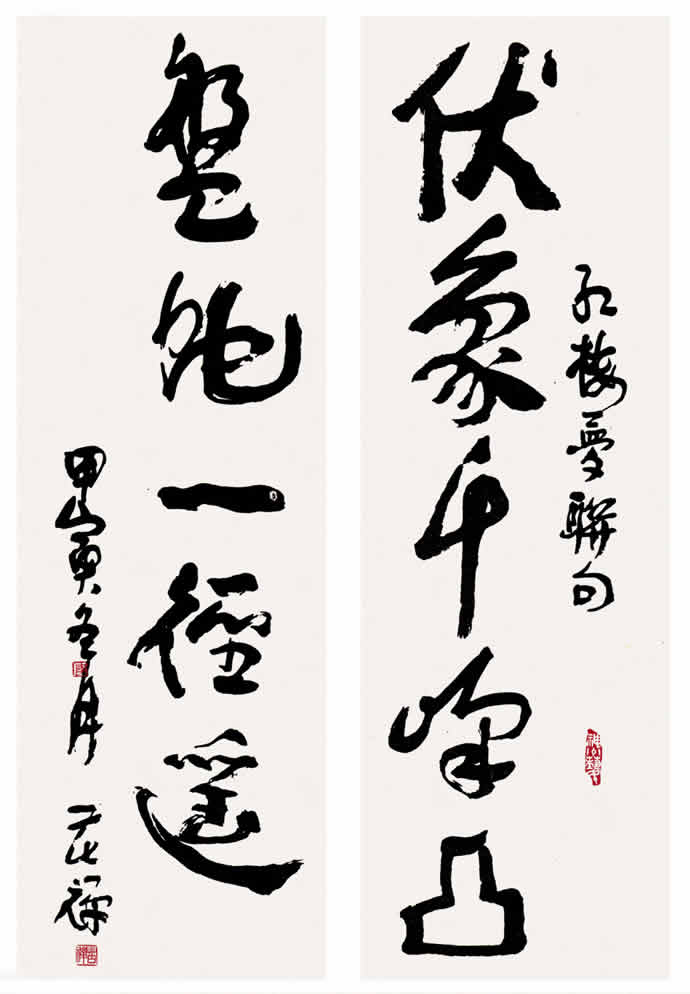 紅樓夢聯句
伏象千峰凸
盤蛇一徑遙
甲寅冬月